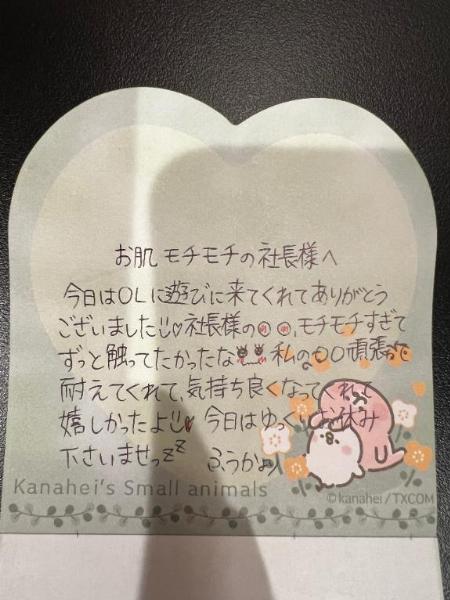 お肌モチモチの社長様へ
今日はOLに遊びに来てくれてありがとう
ございました♡社長様の○○、モチモチすぎて
ずっと触ってたかったな 私の○○頑張って
耐えてくれて、気持ち良くなってくれて
嬉しかったよ♥ 今日はゆっくりお休み
下さいませっzz ふうかより
Kanahei's Small animals
©kanahei/TXCOM